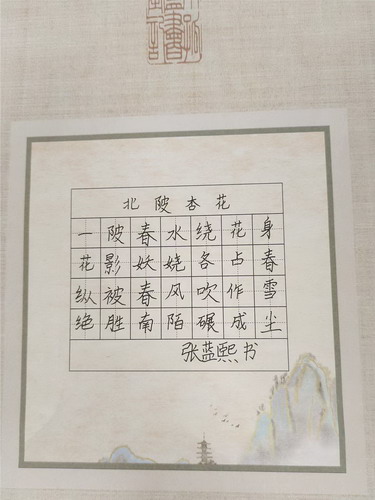 北陂杏花
一陂春水绕花身
花影妖娆各占春
纵被春风吹作雪
绝胜南陌碾成尘
张蓝熙书